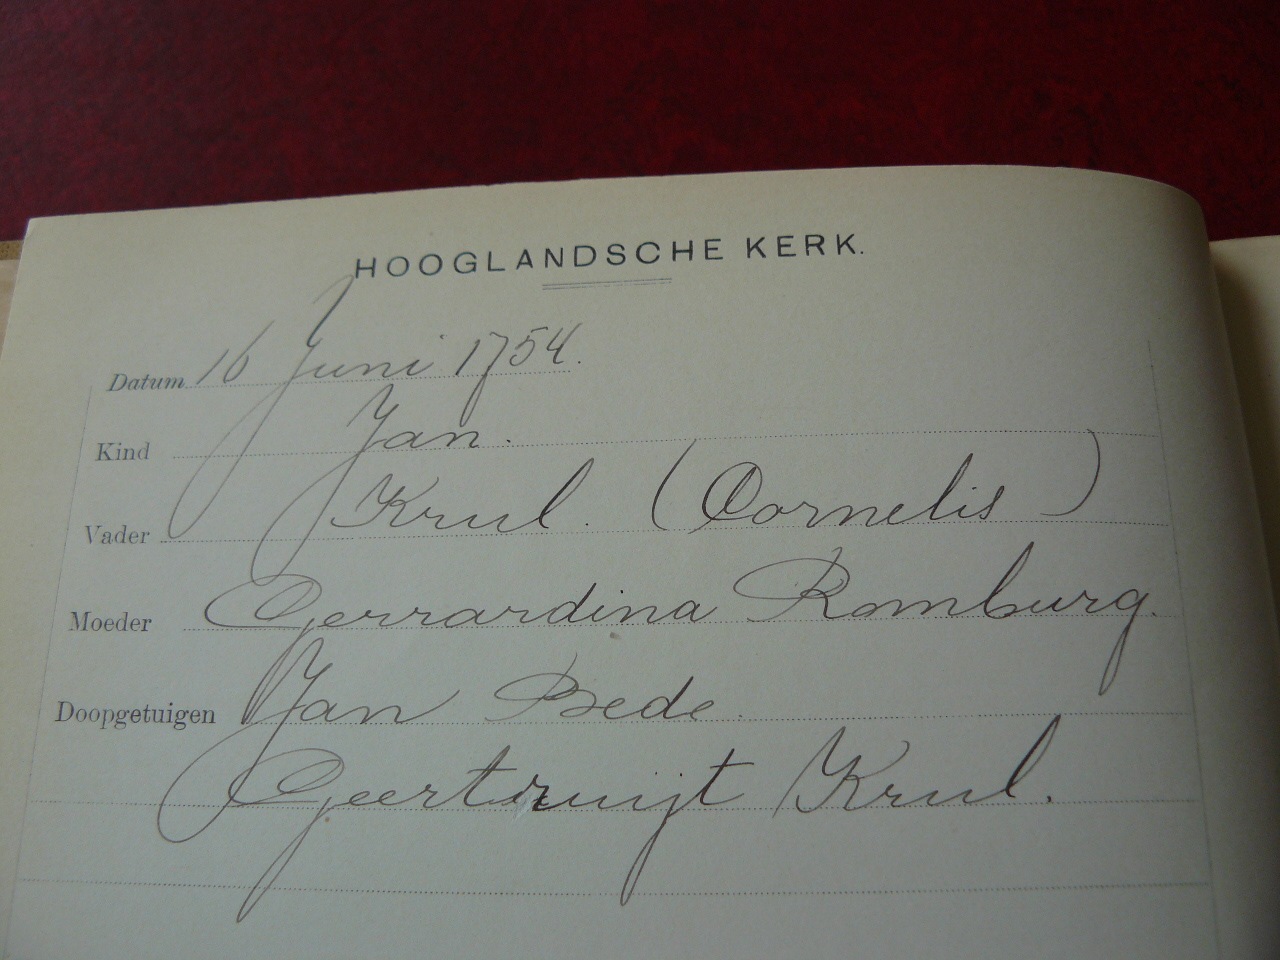 HOOGLANDSCHE KERK.
Datum 16 Juni 1754.
Kind Jan.
Vader Krul. (Cornelis)
Moeder Gerrardina Romburg.
Doopgetuigen Jan Bede.
Geertruijt Krul.